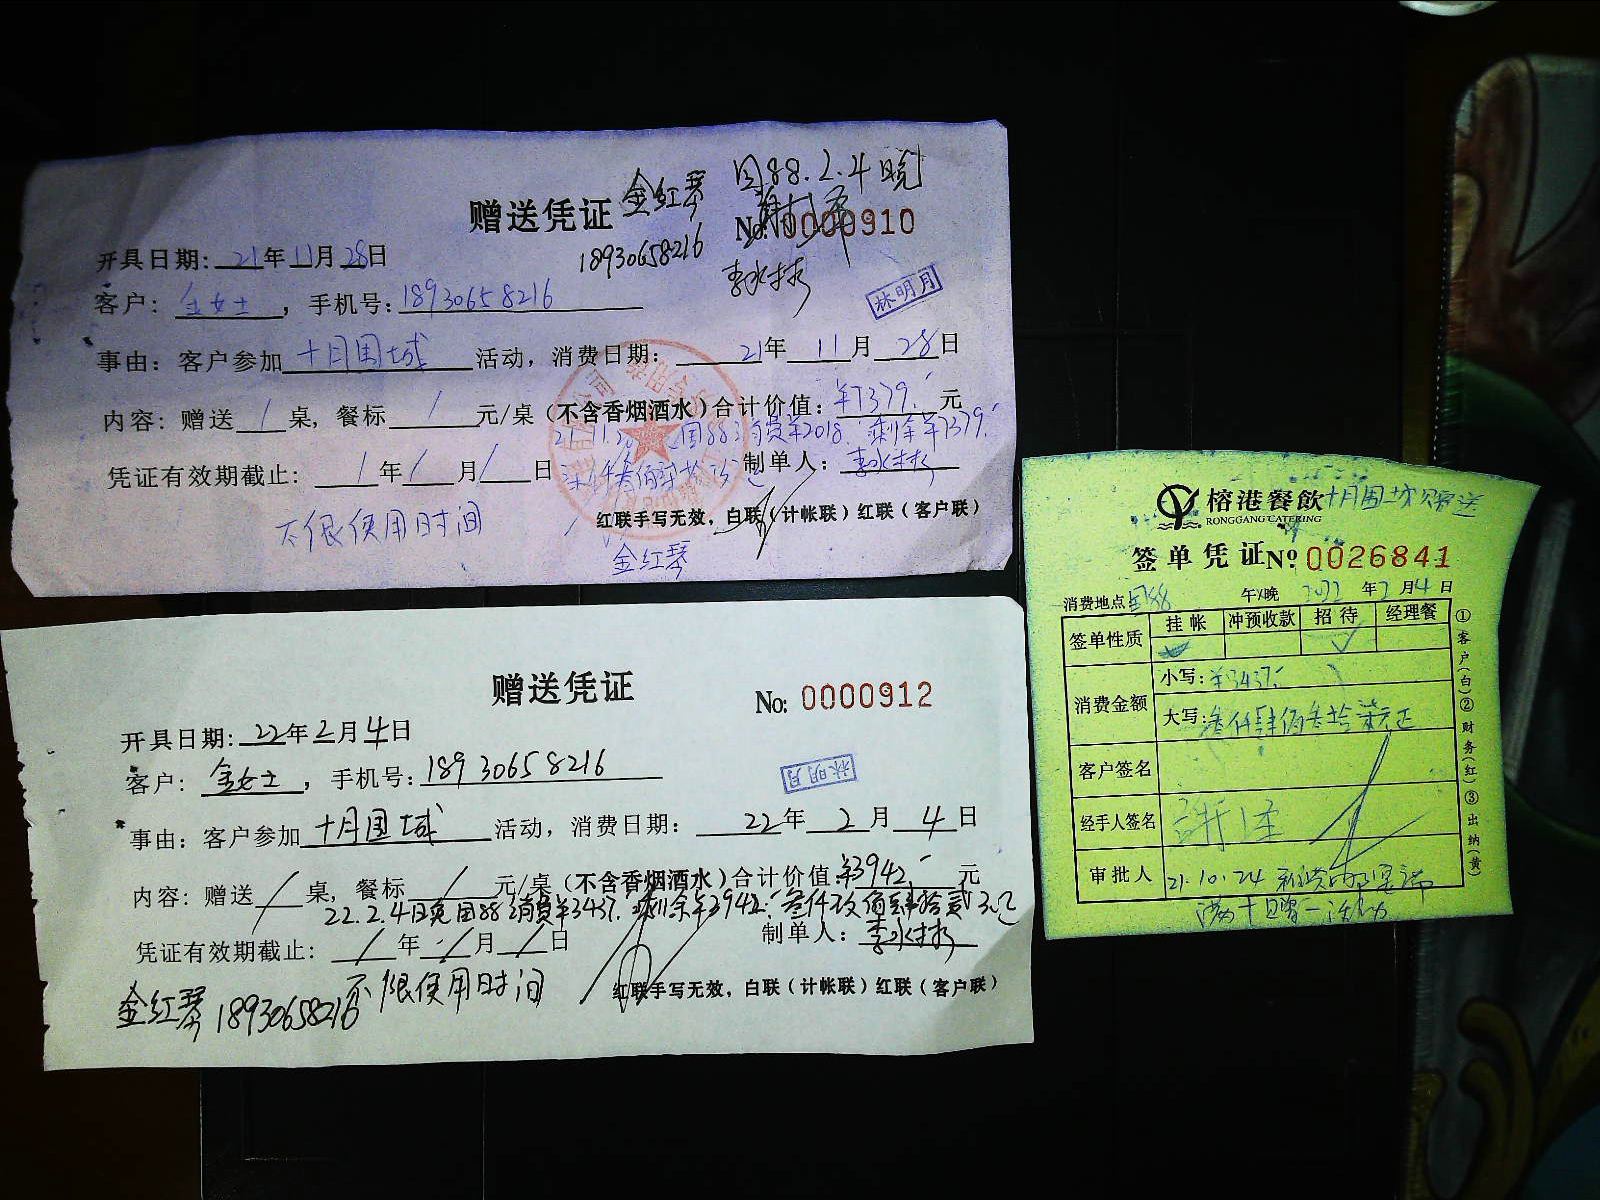 赠送凭证 金红琴 国88.2.4晚
No: 0000910
18930658216
李水林
林明月
开具日期: 21年11月28日
客户: 金女士, 手机号: 18930658216
事由: 客户参加十月围城活动, 消费日期: 21年11月28日
内容: 赠送/桌, 餐标/元/桌(不含香烟酒水)合计价值: ¥7379.元
国88消费¥2018. 剩余¥7379.
凭证有效期截止: /年/月/日 制单人: 李水林
红联手写无效, 白联(计帐联)红联(客户联)
不限使用时间
金红琴
赠送凭证
No: 0000912
开具日期: 22年2月4日
林明月
客户: 金女士, 手机号: 18930658216
事由: 客户参加十月围城活动, 消费日期: 22年2月4日
内容: 赠送/桌, 餐标/元/桌(不含香烟酒水)合计价值: ¥3942.元
22.2.4日晚国88消费¥3437. 剩余¥3942. 叁仟玖佰肆拾贰元正
凭证有效期截止: /年/月/日 制单人: 李水林
红联手写无效, 白联(计帐联)红联(客户联)
不限使用时间
金红琴 18930658216
榕港餐飲 十月围城赠送
RONGGANG CATERING
签单凭证 №0026841
消费地点国88 午/晚 2022年2月4日
签单性质 挂帐 冲预收款 招待 经理餐
消费金额 小写: ¥3437.
大写: 叁仟肆佰叁拾柒元正
客户签名
经手人签名
审批人 21.10.24
①客户(白)②财务(红)③出纳(黄)